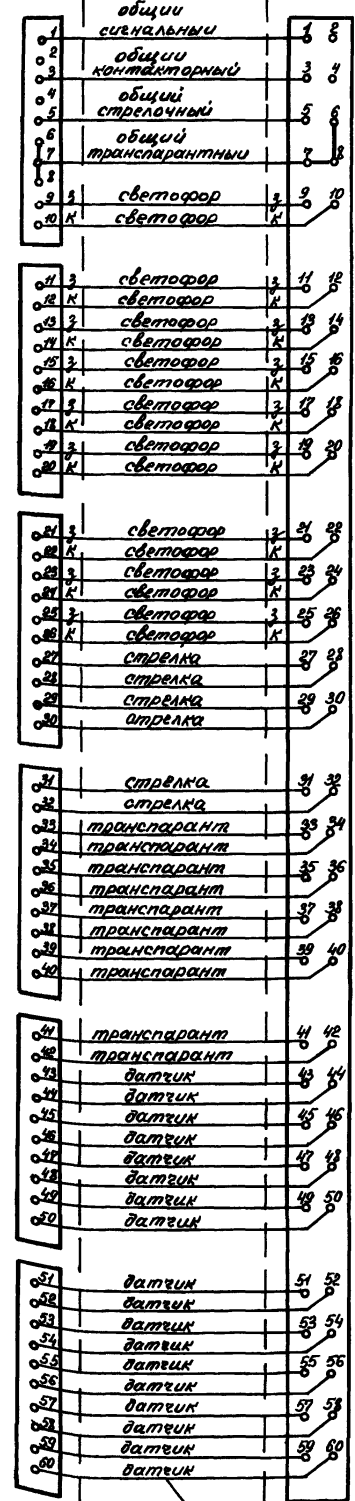 общий
1 сигнальный 1 2
2 общий
3 контакторный 3 4
4 общий
5 стрелочный 5 6
6 общий
7 транспарантный 7 8
8
9 З светофор З 9 10
10 К светофор К
11 З светофор З 11 12
12 К светофор К
13 З светофор З 13 14
14 К светофор К
15 З светофор З 15 16
16 К светофор К
17 З светофор З 17 18
18 К светофор К
19 З светофор З 19 20
20 К светофор К
21 З светофор З 21 22
22 К светофор К
23 З светофор З 23 24
24 К светофор К
25 З светофор З 25 26
26 К светофор К
27 стрелка 27 28
28 стрелка
29 стрелка 29 30
30 стрелка
31 стрелка 31 32
32 стрелка
33 транспарант 33 34
34 транспарант
35 транспарант 35 36
36 транспарант
37 транспарант 37 38
38 транспарант
39 транспарант 39 40
40 транспарант
41 транспарант 41 42
42 транспарант
43 датчик 43 44
44 датчик
45 датчик 45 46
46 датчик
47 датчик 47 48
48 датчик
49 датчик 49 50
50 датчик
51 датчик 51 52
52 датчик
53 датчик 53 54
54 датчик
55 датчик 55 56
56 датчик
57 датчик 57 58
58 датчик
59 датчик 59 60
60 датчик